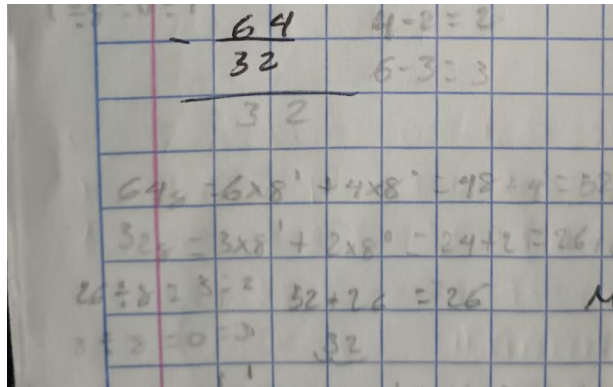 - 64 4-2=2
32 6-3=3
32
64₈ =6x8¹ + 4x8⁰ = 48+4=52
32₈ = 3x8¹ + 2x8⁰ = 24+2=26
26÷8=3=2 52+26 =26
3÷8=0=3 32